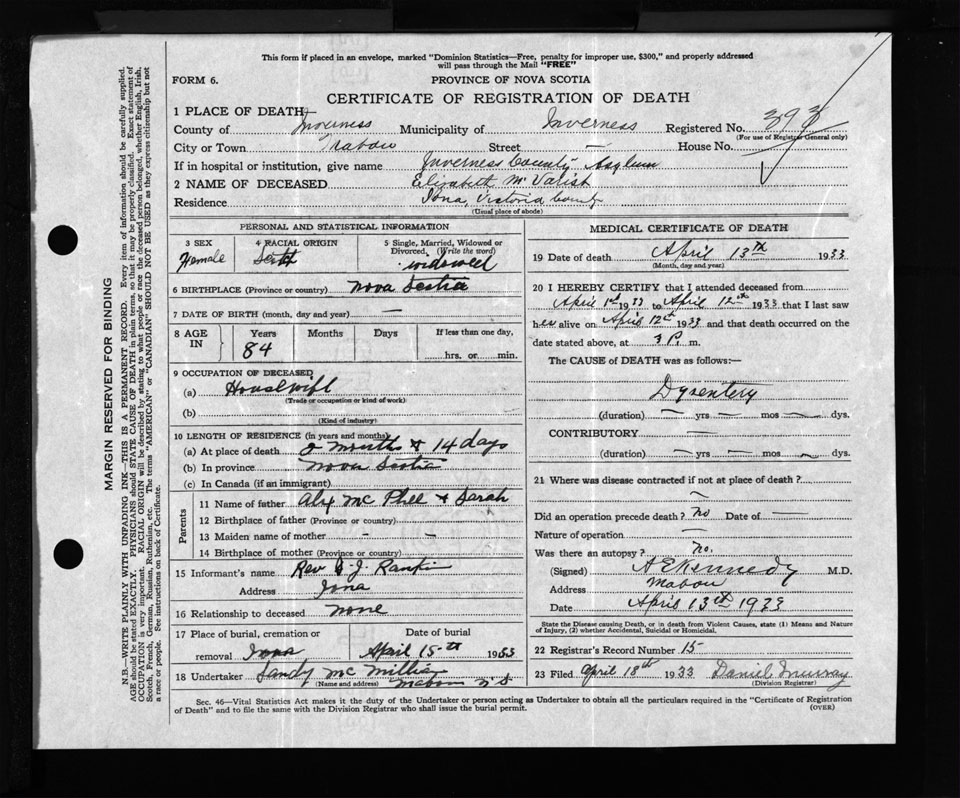 This form if placed in an envelope, marked “Dominion Statistics—Free, penalty for improper use, $300,” and properly addressed
will pass through the Mail “FREE”
FORM 6.
PROVINCE OF NOVA SCOTIA
CERTIFICATE OF REGISTRATION OF DEATH
1 PLACE OF DEATH
County of Inverness Municipality of Inverness Registered No. 393
(For use of Registrar General only)
City or Town Mabou Street — House No.
If in hospital or institution, give name Inverness County Asylum
2 NAME OF DECEASED Elizabeth McVarish
Residence Iona, Victoria County
(Usual place of abode)
PERSONAL AND STATISTICAL INFORMATION
3 SEX Female
4 RACIAL ORIGIN
5 Single, Married, Widowed or Divorced, (Write the word) widowed
6 BIRTHPLACE (Province or country) Nova Scotia
7 DATE OF BIRTH (month, day and year) —
8 AGE IN Years 84 Months Days If less than one day, hrs. or min.
9 OCCUPATION OF DECEASED
(a) Housewife
(Trade or occupation or kind of work)
(b)
(Kind of industry)
10 LENGTH OF RESIDENCE (in years and months)
(a) At place of death month & 14 days
(b) In province Nova Scotia
(c) In Canada (if an immigrant)
Parents
11 Name of father Alex McPhee & Sarah
12 Birthplace of father (Province or country)
13 Maiden name of mother - -
14 Birthplace of mother (Province or country)
15 Informant's name Rev J. Rankin
Address Iona
16 Relationship to deceased none
17 Place of burial, cremation or removal Iona
Date of burial April 15th 1933
18 Undertaker Sandy McMillan
(Name and address) Mabou N.S
MEDICAL CERTIFICATE OF DEATH
19 Date of death April 13th 1933
(Month, day and year)
20 I HEREBY CERTIFY that I attended deceased from
April 1st 1933 to April 12th 1933 that I last saw
her alive on April 12th 1933 and that death occurred on the
date stated above, at 3 P. m.
The CAUSE of DEATH was as follows:—
Dysentery
(duration) — yrs — mos — dys.
CONTRIBUTORY —
(duration) — yrs — mos — dys.
21 Where was disease contracted if not at place of death?
—
Did an operation precede death? No Date of —
Nature of operation —
Was there an autopsy? No.
(Signed) A E Kennedy M.D.
Address Mabou
Date April 13th 1933
State the Disease causing Death, or in death from Violent Causes, state (1) Means and Nature
of Injury, (2) whether Accidental, Suicidal or Homicidal.
22 Registrar's Record Number 15
23 Filed April 18th 1933 Daniel Murray
(Division Registrar)
Sec. 46—Vital Statistics Act makes it the duty of the Undertaker or person acting as Undertaker to obtain all the particulars required in the “Certificate of Registration
of Death” and to file the same with the Division Registrar who shall issue the burial permit.
(OVER)
MARGIN RESERVED FOR BINDING
N.B.—WRITE PLAINLY WITH UNFADING INK—THIS IS A PERMANENT RECORD. Every item of information should be carefully supplied.
AGE should be stated EXACTLY. PHYSICIANS should STATE CAUSE OF DEATH in plain terms, so that it may be properly classified. Exact statement of
OCCUPATION is very important. RACIAL ORIGIN will be described by stating to what people or race the deceased person belonged, whether English, Irish,
Scotch, French, German, Russian, Ruthenian, etc. The terms “AMERICAN” or “CANADIAN” SHOULD NOT BE USED as they express citizenship but not
a race or people. See instructions on back of Certificate.